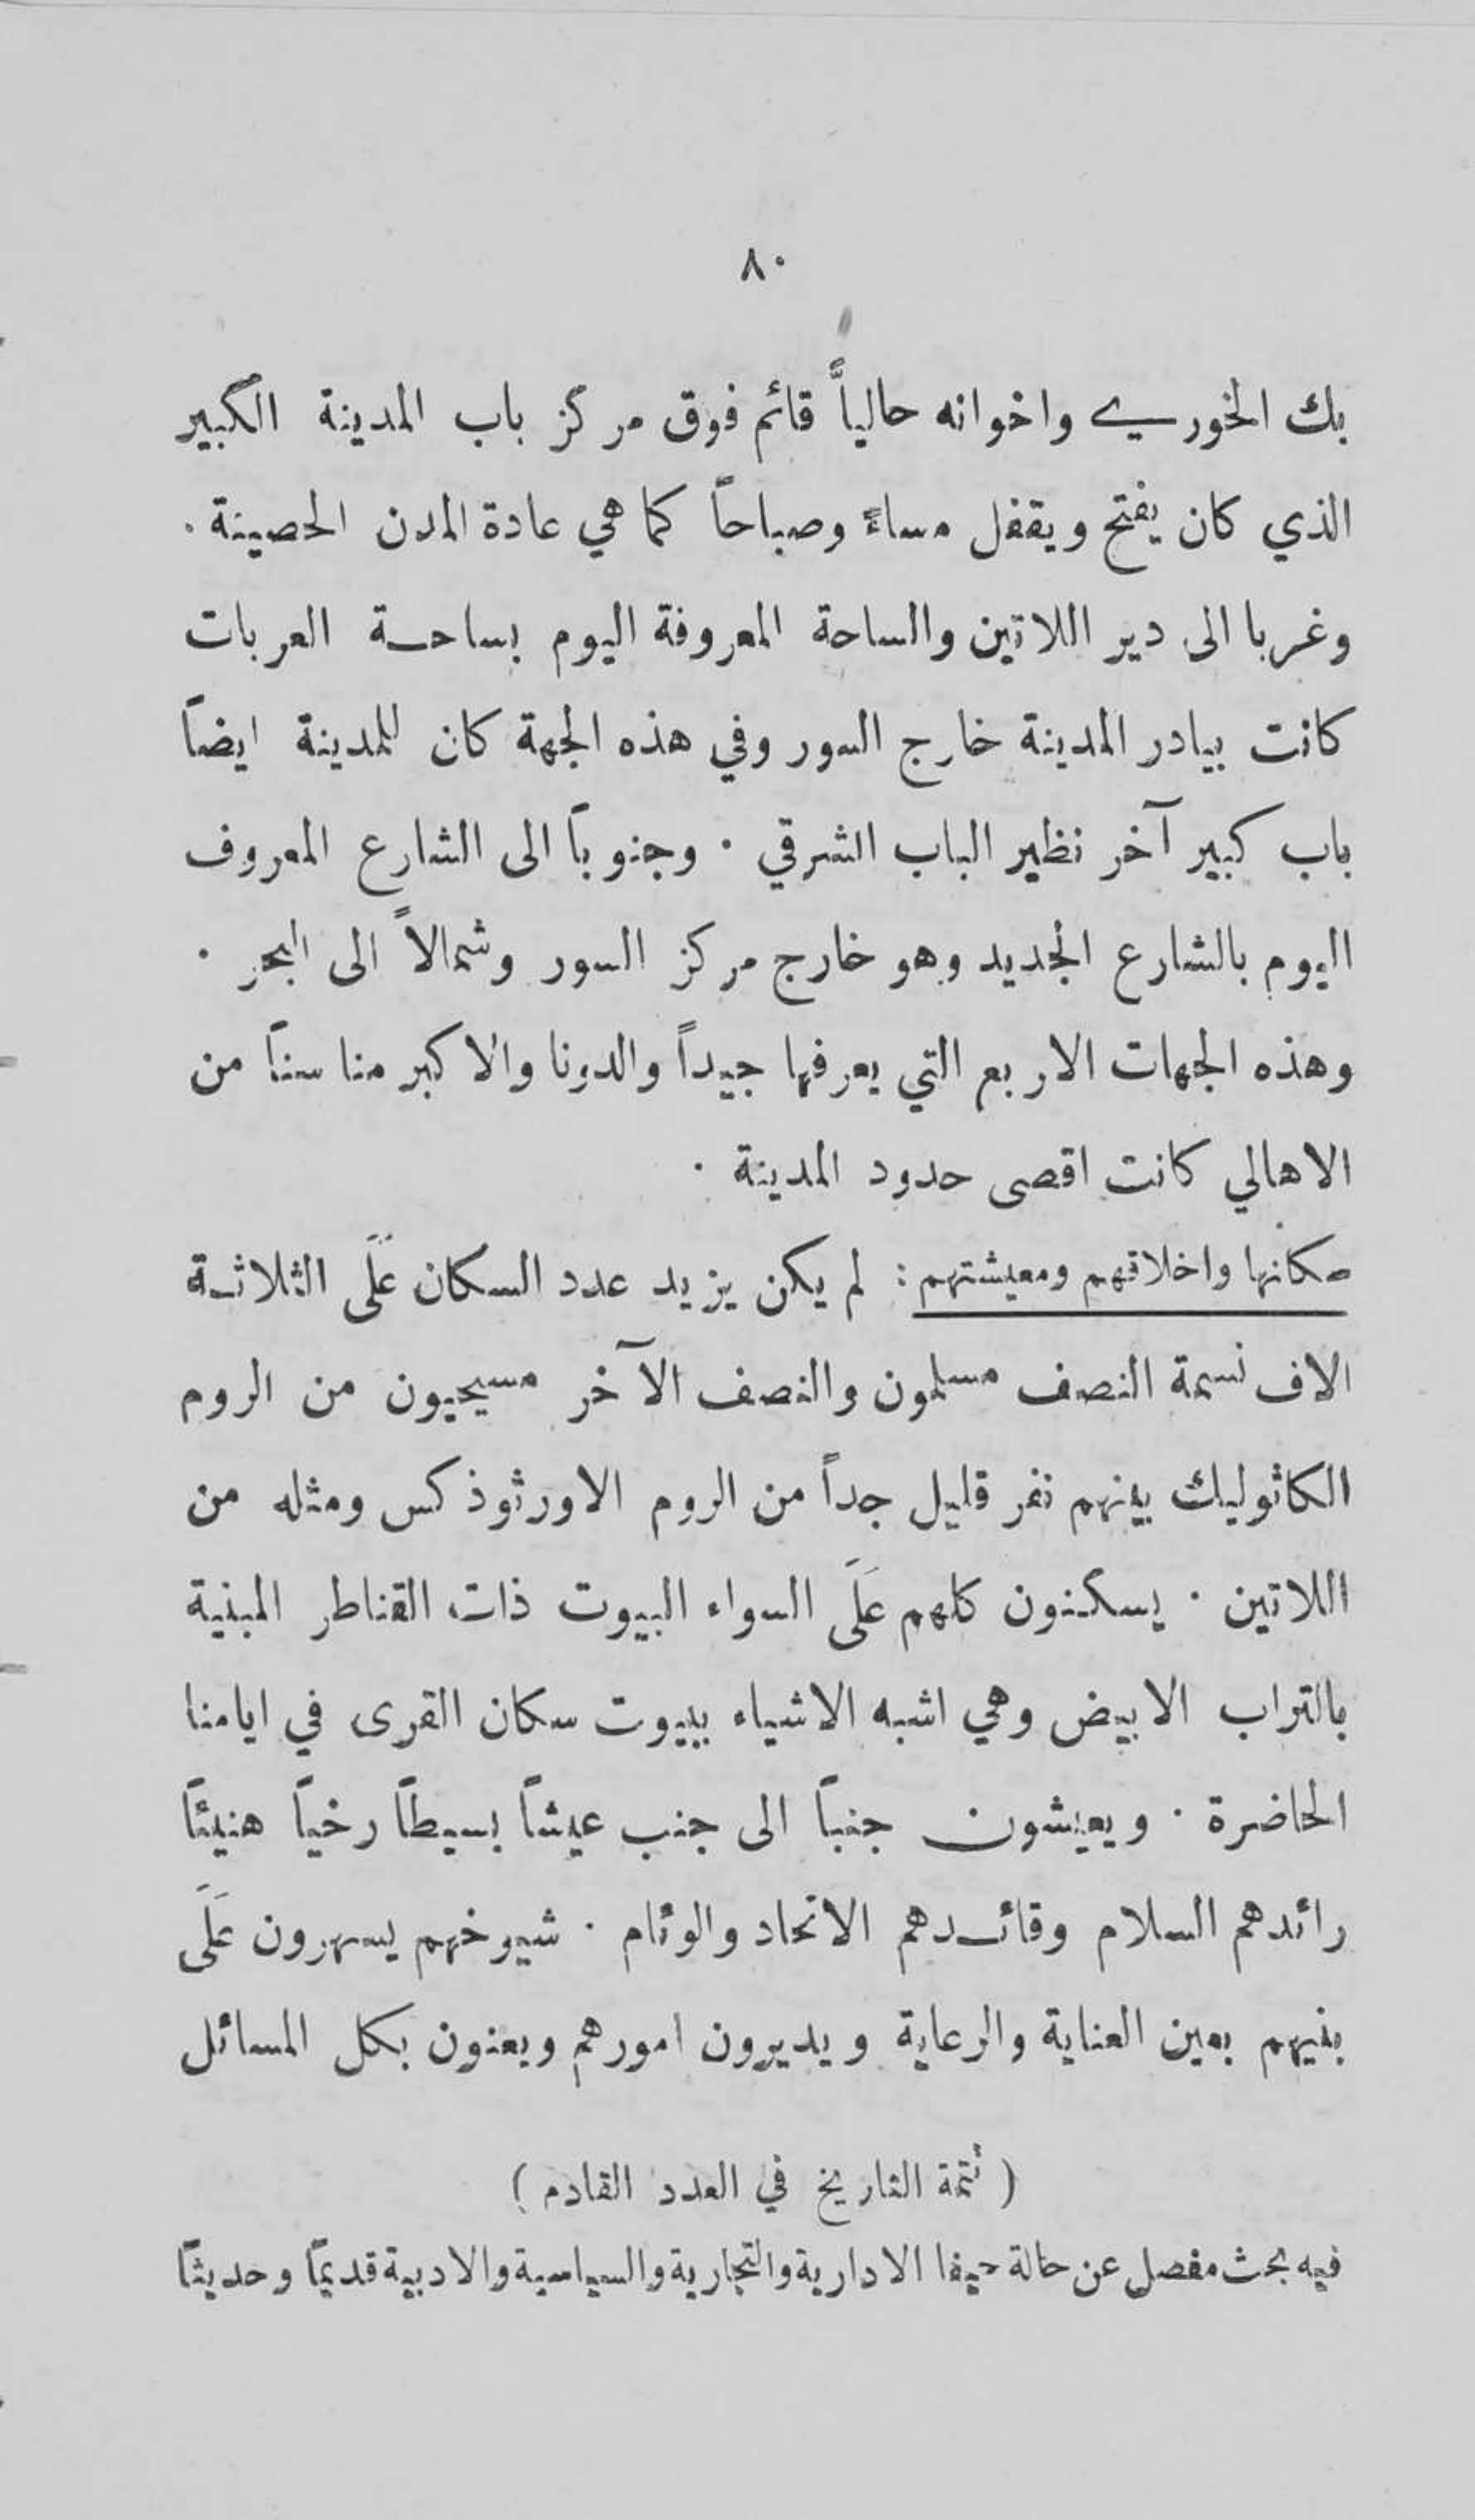 ٨٠
بك الخوري واخوانه حالياً قائم فوق مركز باب المدينة الكبير
الذي كان يفتح ويقفل مساءً وصباحاً كما هي عادة المدن الحصينة .
وغربا الى دير اللاتين والساحة المعروفة اليوم بساحة العربات
كانت بيادر المدينة خارج السور وفي هذه الجهة كان للمدينة ايضاً
باب كبير آخر نظير الباب الشرقي . وجنوباً الى الشارع المعروف
اليوم بالشارع الجديد وهو خارج مركز السور وشمالاً الى البحر .
وهذه الجهات الاربع التي يعرفها جيداً والدونا والاكبر منا سناً من
الاهالي كانت اقصى حدود المدينة .
سكانها واخلاقهم ومعيشتهم : لم يكن يزيد عدد السكان عَلَى الثلاثة
الاف نسمة النصف مسلمون والنصف الآخر مسيحيون من الروم
الكاثوليك بينهم نفر قليل جداً من الروم الاورثوذكس ومثله من
اللاتين . يسكنون كلهم عَلَى السواء البيوت ذات القناطر المبنية
بالتراب الابيض وهي اشبه الاشياء ببيوت سكان القرى في ايامنا
الحاضرة . ويعيشون جنباً الى جنب عيشاً بسيطاً رخياً هنيئاً
رائدهم السلام وقائدهم الاتحاد والوئام . شيوخهم يسهرون عَلَى
بنيهم بعين العناية والرعاية ويديرون امورهم ويعنون بكل المسائل
( تتمة التاريخ في العدد القادم )
فيه بحث مفصل عن حالة حيفا الادارية والتجارية والسياسية والادبية قديماً وحديثاً